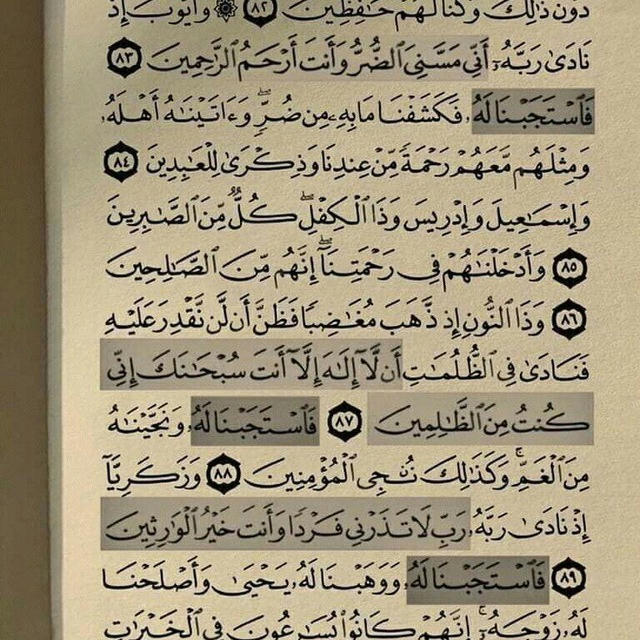 دُونَ ذَٰلِكَ وَكُنَّا لَهُمْ حَٰفِظِينَ ٨٢ ۞ وَأَيُّوبَ إِذْ
نَادَىٰ رَبَّهُۥٓ أَنِّى مَسَّنِىَ ٱلضُّرُّ وَأَنتَ أَرْحَمُ ٱلرَّٰحِمِينَ ٨٣
فَٱسْتَجَبْنَا لَهُۥ فَكَشَفْنَا مَا بِهِۦ مِن ضُرٍّۖ وَءَاتَيْنَٰهُ أَهْلَهُۥ
وَمِثْلَهُم مَّعَهُمْ رَحْمَةً مِّنْ عِندِنَا وَذِكْرَىٰ لِلْعَٰبِدِينَ ٨٤
وَإِسْمَٰعِيلَ وَإِدْرِيسَ وَذَا ٱلْكِفْلِۖ كُلٌّ مِّنَ ٱلصَّٰبِرِينَ
٨٥ وَأَدْخَلْنَٰهُمْ فِى رَحْمَتِنَآۖ إِنَّهُم مِّنَ ٱلصَّٰلِحِينَ
٨٦ وَذَا ٱلنُّونِ إِذ ذَّهَبَ مُغَٰضِبًا فَظَنَّ أَن لَّن نَّقْدِرَ عَلَيْهِ
فَنَادَىٰ فِى ٱلظُّلُمَٰتِ أَن لَّآ إِلَٰهَ إِلَّآ أَنتَ سُبْحَٰنَكَ إِنِّى
كُنتُ مِنَ ٱلظَّٰلِمِينَ ٨٧ فَٱسْتَجَبْنَا لَهُۥ وَنَجَّيْنَٰهُ
مِنَ ٱلْغَمِّۚ وَكَذَٰلِكَ نُۨجِى ٱلْمُؤْمِنِينَ ٨٨ وَزَكَرِيَّآ
إِذْ نَادَىٰ رَبَّهُۥ رَبِّ لَا تَذَرْنِى فَرْدًا وَأَنتَ خَيْرُ ٱلْوَٰرِثِينَ
٨٩ فَٱسْتَجَبْنَا لَهُۥ وَوَهَبْنَا لَهُۥ يَحْيَىٰ وَأَصْلَحْنَا
لَهُۥ زَوْجَهُۥٓۚ إِنَّهُمْ كَانُوا۟ يُسَٰرِعُونَ فِى ٱلْخَيْرَٰتِ